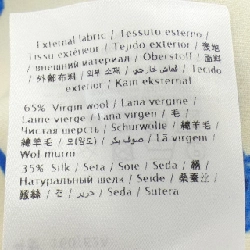 External fabric / Tessuto esterno /
Tissu extérieur / Tejido exterior / 表地
/ внешний материал / Oberstoff / 面料
/ 外部布料 / 외부 소재 / قماش خارجي / Tecido
exterior / Kain eksternal
65% Virgin wool / Lana vergine /
Laine vierge / Lana virgen / 毛 /
Чистая шерсть / Schurwolle / 绵羊毛 /
綿羊毛 / 모(양모) / صوف بكر / Lã virgem /
Wol murni
35% Silk / Seta / Soie / Seda / 絹 /
Натуральный шелк / Seide / 桑蚕丝 /
絲 / 견 / حرير / Seda / Sutera